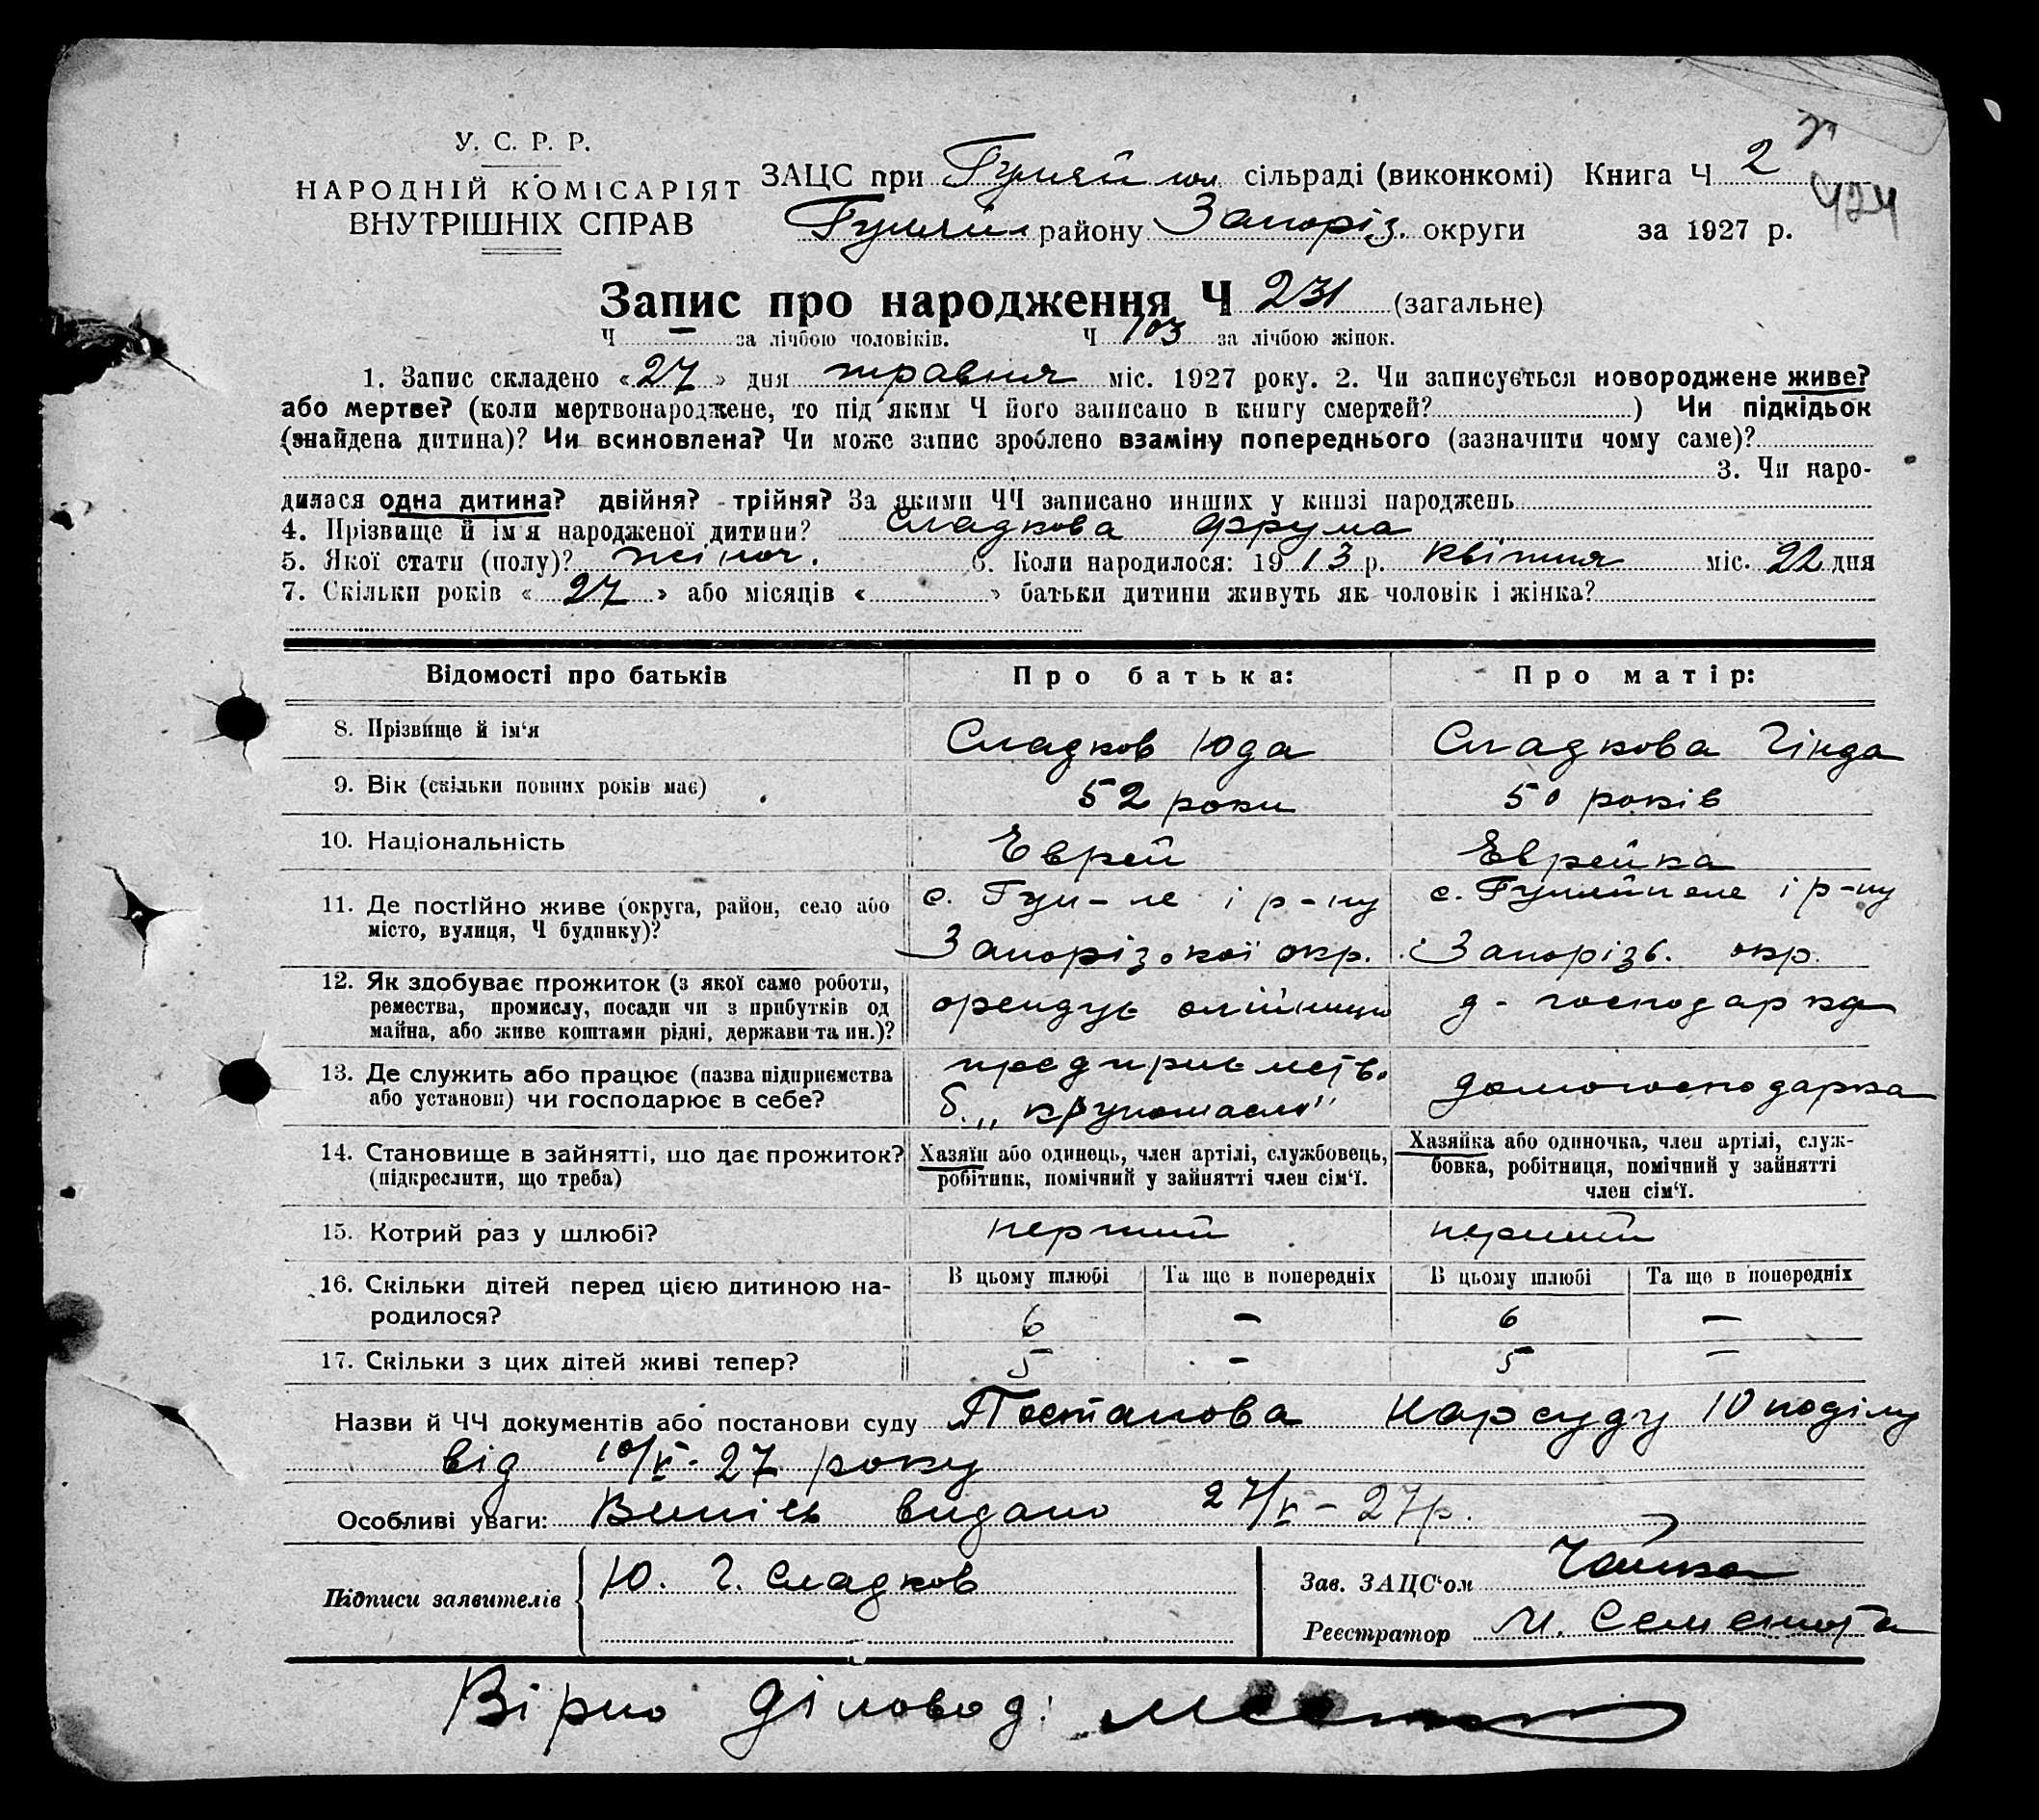 У. С. Р. Р.
НАРОДНІЙ КОМІСАРІЯТ
ВНУТРІШНІХ СПРАВ
ЗАЦС при Гуляйпол. сільраді (виконкомі) Книга Ч 2
424
Гуляйп. району Запоріз. округи за 1927 р.
Запис про народження Ч 231 (загальне)
Ч — за лічбою чоловіків. Ч 103 за лічбою жінок.
1. Запис складено «27» дня травня міс. 1927 року. 2. Чи записується новороджене живе?
або мертве? (коли мертвонароджене, то під яким Ч його записано в книгу смертей?) Чи підкідьок
(знайдена дитина)? Чи всиновлена? Чи може запис зроблено взаміну попереднього (зазначити чому саме)?
3. Чи наро-
дилася одна дитина? двійня? трійня? За якими ЧЧ записано инших у книзі народжень
4. Прізвище й ім'я народженої дитини? Сладкова Фрума
5. Якої стати (полу)? жіноч. 6. Коли народилося: 1913 р. квітня міс. 22 дня
7. Скільки років «27» або місяців « » батьки дитини живуть як чоловік і жінка?
Відомості про батьків Про батька: Про матір:
8. Прізвище й ім'я Сладков Юда Сладкова Гінда
9. Вік (скільки повних років має) 52 роки 50 років
10. Національність Еврей Еврейка
11. Де постійно живе (округа, район, село або с. Гул-ле і р-ну с. Гуляйполе і р-ну
місто, вулиця, Ч будинку)? Запорізької окр. Запорізь. окр.
12. Як здобуває прожиток (з якої само роботи,
ремества, промислу, посади чи з прибутків од орендує олійницю д-господарка
майна, або живе коштами рідні, держави та ин.)?
13. Де служить або працює (назва підприємства предприємств. домогосподарка
або установи) чи господарює в себе? б. „крупомасло"
14. Становище в зайнятті, що дає прожиток? Хазяїн або одинець, член артілі, службовець, Хазяйка або одиночка, член артілі, служ-
(підкреслити, що треба) робітник, помічний у зайнятті член сім'ї. бовка, робітниця, помічний у зайнятті
член сім'ї.
15. Котрий раз у шлюбі? перший перший
16. Скільки дітей перед цією дитиною на- В цьому шлюбі Та ще в попередніх В цьому шлюбі Та ще в попередніх
родилося? 6 — 6 —
17. Скільки з цих дітей живі тепер? 5 — 5 —
Назви й ЧЧ документів або постанови суду Постанова Нарсуду 10 поділу
від 10/V-27 року
Особливі уваги: Випись видано 27/V-27р.
Підписи заявителів Ю. Г. Сладков Зав. ЗАЦС'ом Чайка
Реєстратор М. Семенюта
Вірно Діловод: